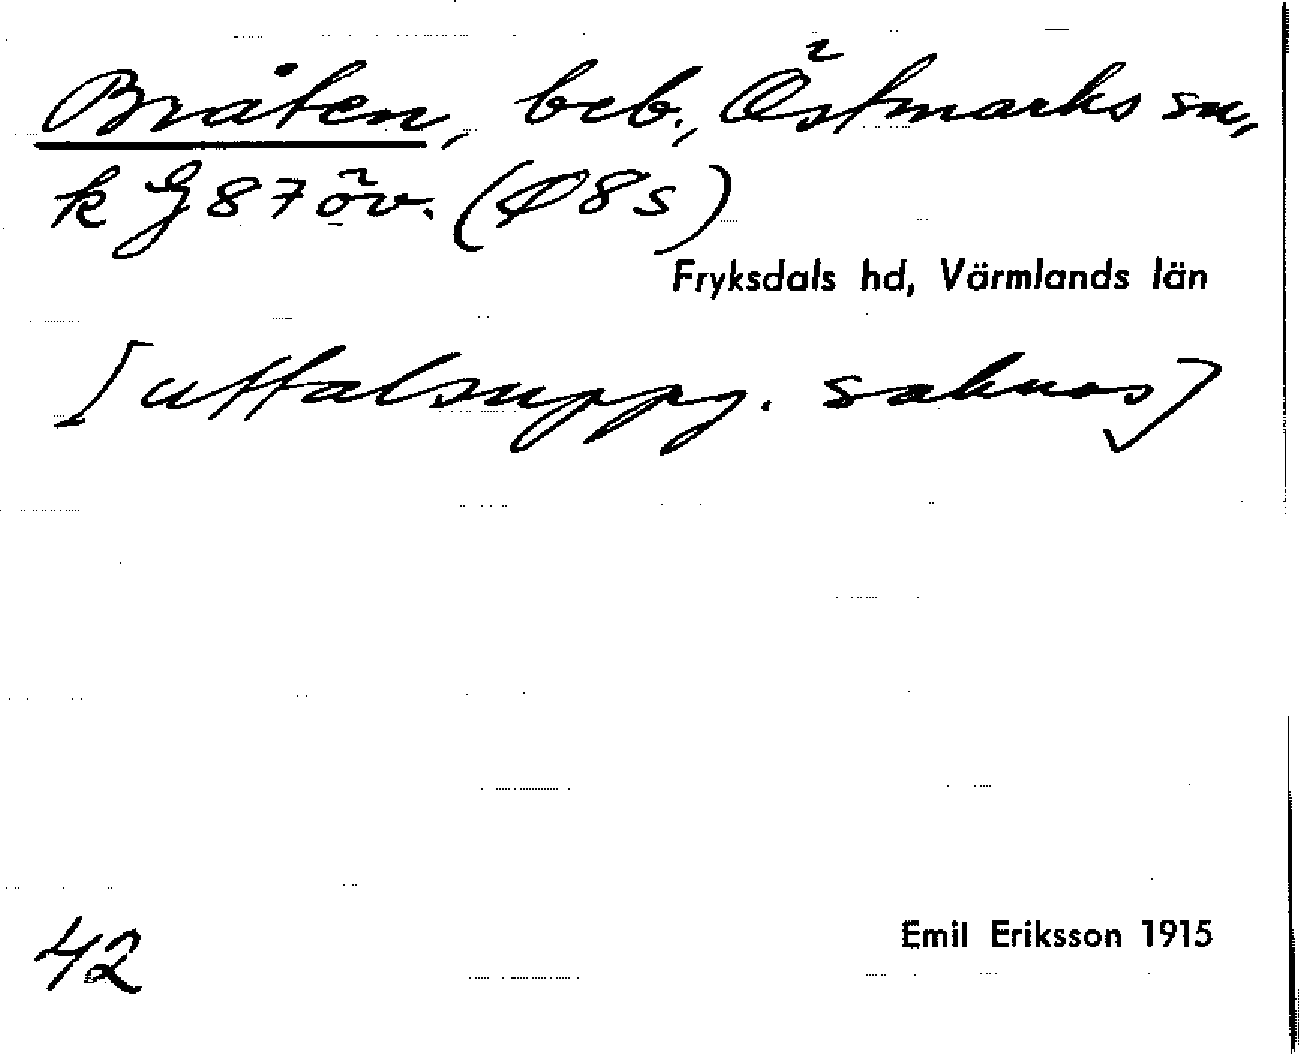 Bråten, beb., Östmarks sn,
k G 87 öv. (Ø 8 s)
Fryksdals hd, Värmlands län
[uttalsuppg. saknas]
42
Emil Eriksson 1915